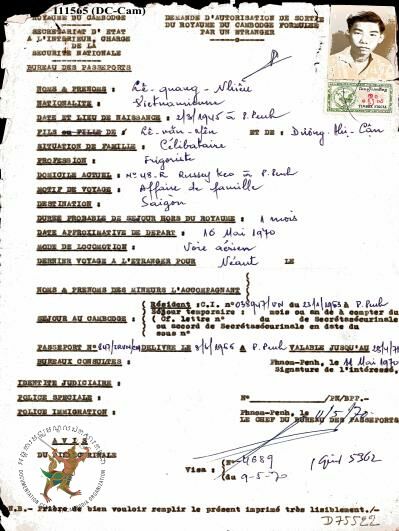 111565 (DC-Cam)
ROYAUME DU CAMBODGE
SECRETARIAT D'ETAT
A L'INTERIEUR, CHARGE
DE LA
SECURITE NATIONALE
BUREAU DES PASSEPORTS
DEMANDE D'AUTORISATION DE SORTIE
DU ROYAUME DU CAMBODGE FORMULEE
PAR UN ETRANGER
NOMS & PRENOMS : Lê-quang-Nhiêu
NATIONALITE : Vietnamienne
DATE ET LIEU DE NAISSANCE : 2/3/1945 à P.Penh
FILS ou FILLE DE : Lê-văn- ET DE : Dương-thị-Cận
SITUATION DE FAMILLE : Célibataire
PROFESSION : Frigoriste
DOMICILE ACTUEL : No 48.R Russey Keo à P.Penh
MOTIF DE VOYAGE : Affaire de famille
DESTINATION : Saigon
DUREE PROBABLE DE SEJOUR HORS DU ROYAUME : 1 mois
DATE APPROXIMATIVE DE DEPART : 16 Mai 1970
MODE DE LOCOMOTION : Voie aérien
DERNIER VOYAGE A L'ETRANGER POUR Néant LE
NOMS & PRENOMS DES MINEURS L'ACCOMPAGNANT
SEJOUR AU CAMBODGE :
Résident :C.I. no du à P.Penh
Séjour temporaire : mois ou en à compter du
Cf. lettre no du de Secrétasécurinale
ou accord de Secrétasécurinale en date du
sous no
PASSEPORT No DELIVRE LE à P.Penh VALABLE JUSQU'AU
BUREAUX CONSULTES :
Phnom-Penh, le 11 Mai 1970
Signature de l'intéressé,
IDENTITE JUDICIAIRE :
POLICE SPECIALE :
POLICE IMMIGRATION :
No /PN/BPP.-
Phnom-Penh, le 11/5/70
LE CHEF DU BUREAU DES PASSEPORTS
AVIS
Visa : (No 4689
(du 9-5-70
5362
N.B.- Prière de bien vouloir remplir le présent imprimé très lisiblement./-
D75522